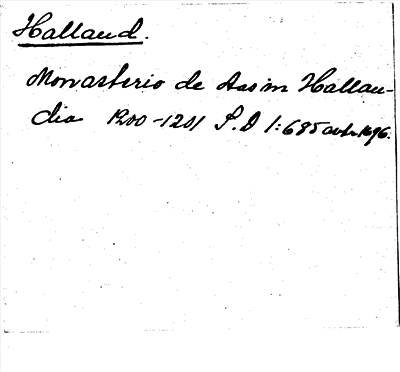 Halland.
Monasterio de Aas in Hallan-
dia 1200-1201 S.D 1:685 avtr. 1696.